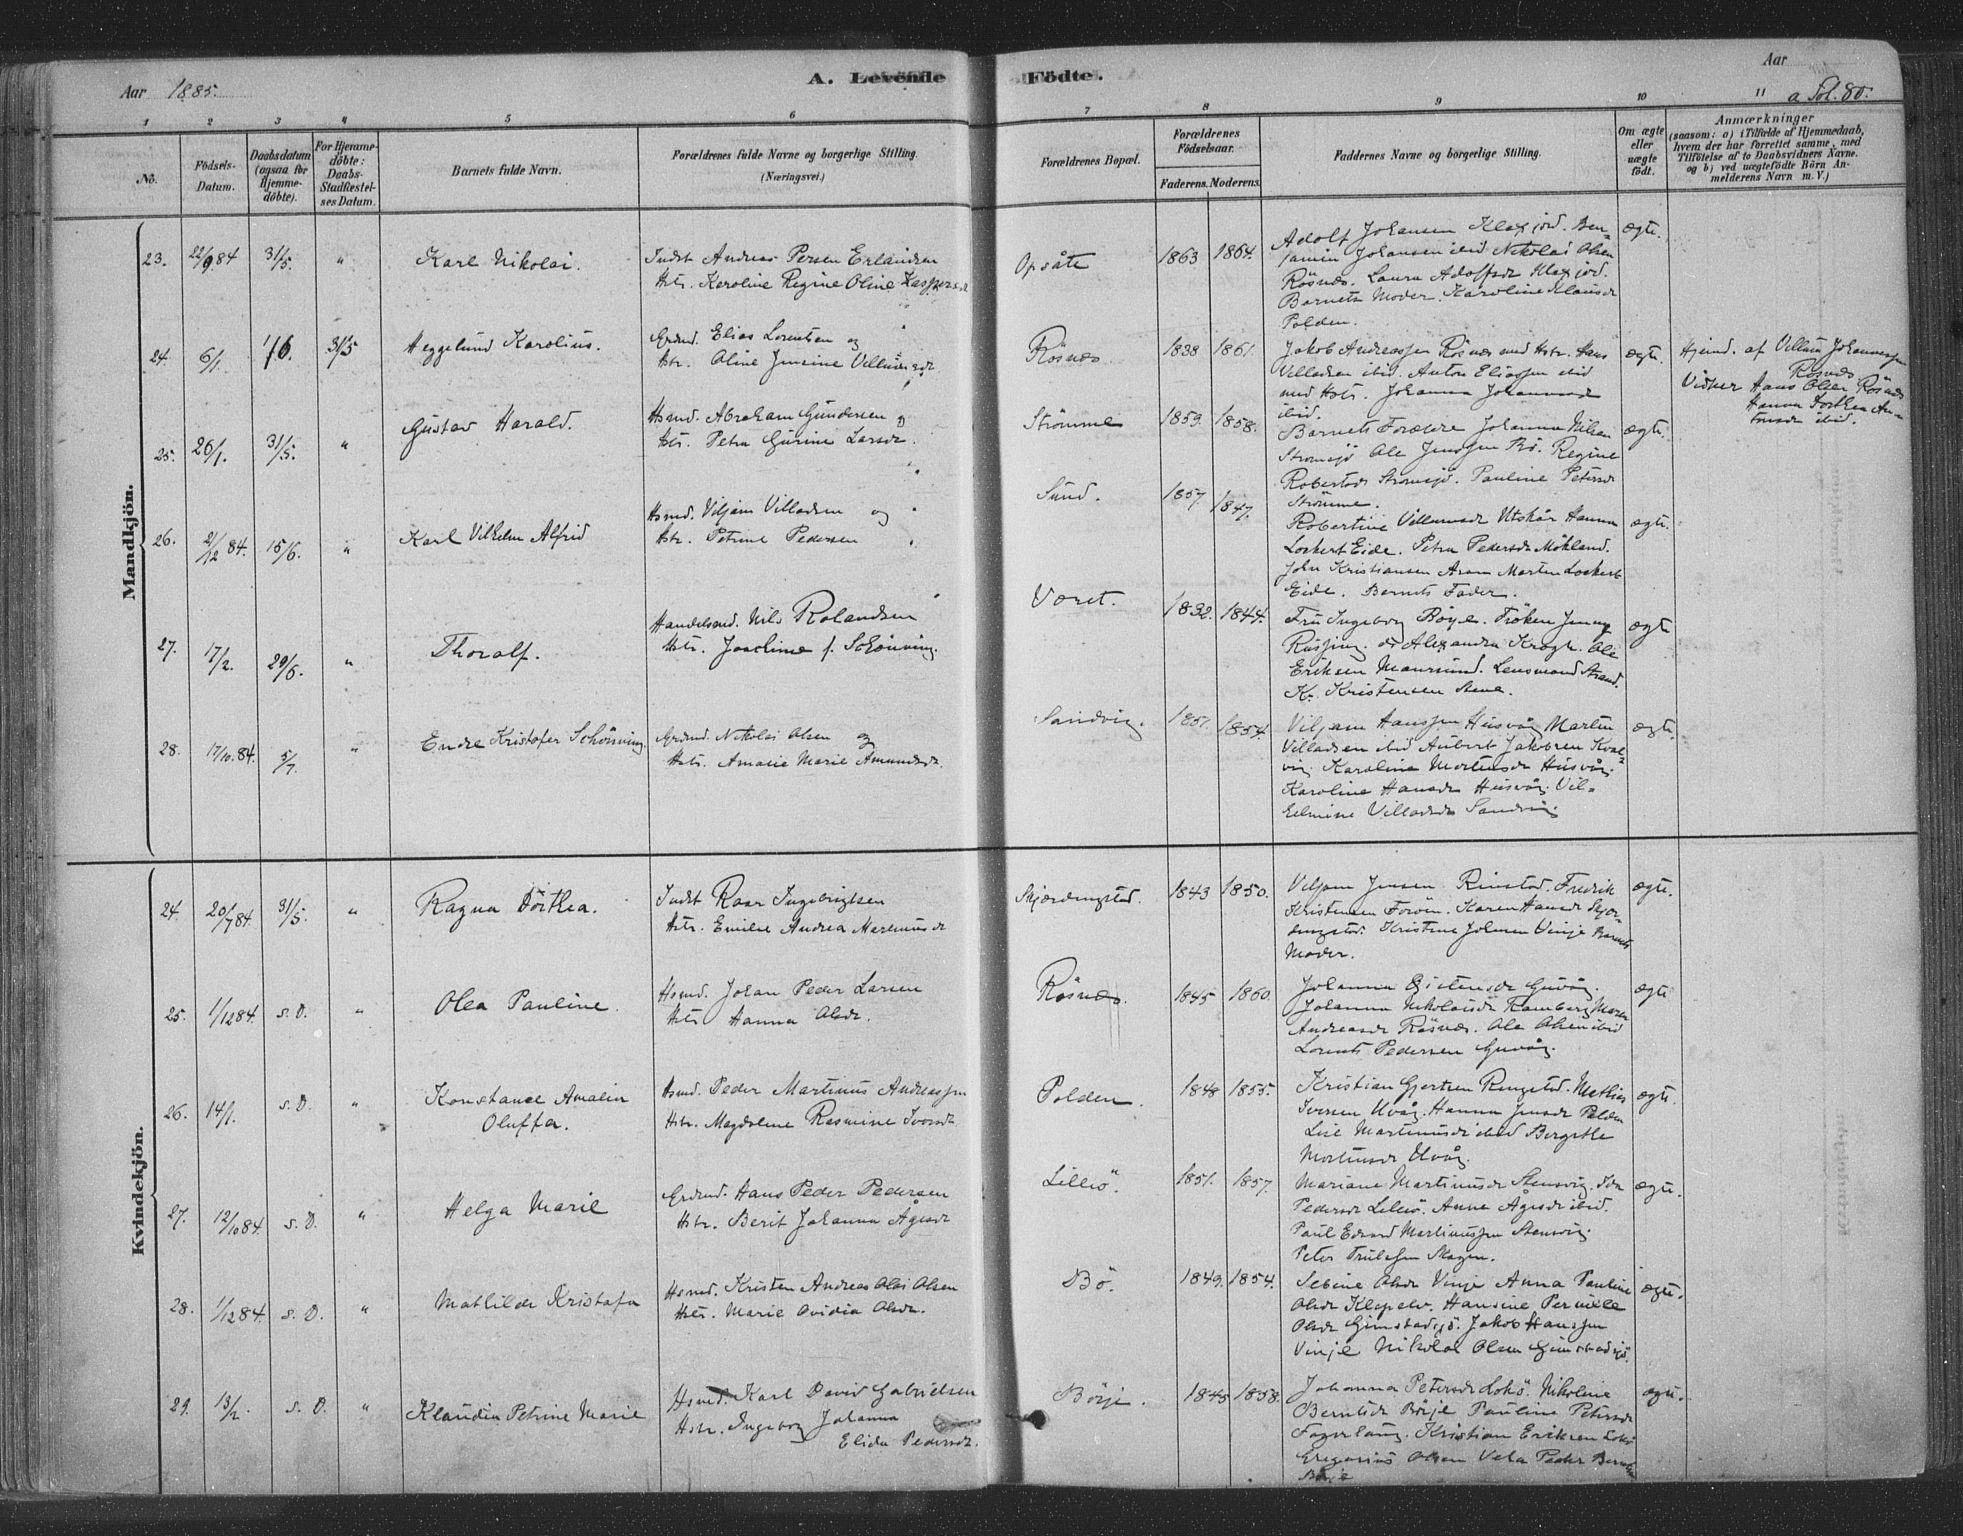 Aar 1885.
A. Levende Födte.
Aar
a Fol. 80.
1 2 3 4 5 6 7 8 9 10 11
No.
Födsels-
Datum.
Daabsdatum
(ogsaa for
Hjemme-
döbte).
For Hjemme-
döbte:
Daabs-
Stadfæstel-
ses Datum.
Barnets fulde Navn.
Forældrenes fulde Navne og borgerlige Stilling.
(Næringsvei.)
Forældrenes Bopæl.
Forældrenes
Födselsaar.
Faderens. Moderens.
Faddernes Navne og borgerlige Stilling.
Om ægte
eller
uægte
födt.
Anmærkninger
(saasom: a) i Tilfælde af Hjemmedaab,
hvem der har forrettet samme, med
Tilföielse af to Daabsvidners Navne.
og b) ved uægtefödte Börn An-
melderens Navn m. V.)
Mandkjön.
23. 22/9 84 31/5. " Karl Nikolai.
Indst Andreas Persen Erlandsen
Hstr. Karoline Regine Oline Kaspersdr
Opsåte 1863 1864.
Adolf Johansen Klaxjord. Ben-
jamin Johansen ibid Nikolai Olsen
Rösnes. Laura Adolfsdr Klaxjord.
Barnets Moder. Karoline Klausdr
Polden.
ægte.
24. 6/1. 1/6. 31/5 Heggelund Karolius.
Grdmd. Elias Lorentsen og
Hstr. Oline Jensine Villumsdr
Rösnæs 1838 1861.
Jakob Andreassen Rösnæs med Hstr. Hans
Villadsen ibid. Anton Eliassen ibid
med Hstr. Johanna Johannesdr
ibid.
ægte.
Hjemd. af Villum Johannessen
Rösnæs
Vidner Hans Olsen Rösnæs
Hanna Dorthea An-
tonsdr ibid.
25. 26/1. 31/5. " Gustav Harald.
Hsmd. Abraham Gundersen og
Hstr. Petra Gurine Larsdr.
Strömme 1859. 1858.
Barnets Forældre Johanna Nilsen
Strømsjö Ole Jensen Bö. Regine
Robertsdr Strømsjö. Pauline Petersdr
Strömme.
ægte.
26. 2/12 84. 15/6. " Karl Vilhelm Alfrid
Hsmd. Viljam Villadsen og
Hstr. Petrine Pedersen
Sund. 1857. 1847.
Robertine Villumsdr Utskår Hanna
Lockert Eide. Petra Pedersdr Mökland.
John Kristiansen Aram Morten Lockert
Eide. Barnets Fader.
ægte.
27. 17/2. 29/6. " Thoralf.
Handelsmd. Nils Rolandsen
Hstr. Joachime f. Schönning.
Været. 1832. 1844.
Fru Ingeborg Röye. Fröken Jenny
Rusjing. Alexandra Krogh. Ole
Eriksen Maursund. Lensmand Strand.
K. Kristensen Steve.
ægte
28. 17/10. 84. 5/7. " Endre Kristofer Schönning
Grdmd. Nikolai Olsen og
Hstr. Amalie Marie Amundsdr.
Sandvig. 1851. 1854.
Viljam Hanssen Husvåg Martin
Villadsen ibid Aubert Jakobsen Kval-
vig. Karoline Mortensdr Husvåg.
Karoline Hansdr Husvåg. Vil-
helmine Villadsdr Sandvig.
ægte.
Kvindekjön.
24. 20/7 84. 31/5. " Ragna Dorthea.
Indst Roar Ingebrigtsen
Hstr. Emilie Andrea Marenusdr
Skjærdingstad. 1843 1850.
Viljam Jensen Rinstad. Fredrik
Kristensen Foröen. Karen Hansdr Skjær-
dingstad. Kristine Johnsen Vinje Barnets
Moder.
ægte.
25. 1/12 84. s. D. " Olea Pauline.
Hsmd. Johan Peder Larsen
Hstr Hanna Olsdr.
Rösnæs. 1845 1860.
Johanna Guvåg.
Johanna Nikolaisdr Ramberg Maren
Andreasdr Rösnæs. Ole Olsen ibid
Lorents Pedersen Guvåg.
ægte
26. 14/1. s. D. " Konstance Amalia
Oluffa.
Hsmd. Peder Martinus Andreassen
Hstr. Magdalene Rasmine Iversdr
Polden. 1848 1855.
Kristian Gjertsen Ringstad. Mathias
Iversen Uvåg. Hanna Jensdr Polden
Lise Martinusdr ibid Bergitte
Mortensdr Uvåg.
ægte.
27. 12/10 84. s. D. " Helga Marie
Grdmd. Hans Peder Pedersen
Hstr. Berit Johanna Ågesdr
Lilleö. 1851. 1857.
Mariane Martinusdr Stensvig. Ida
Pedersdr Lilleö. Anna Ågesdr ibid.
Paul Edvard Martinussen Stensvig.
Peter Trulssen Skagen.
ægte.
28. 1/12 84. s. D. " Mathilde Kristofa
Hsmd. Kristen Andreas Olai Olsen
Hstr. Marie Ovidia Olsdr.
Bö. 1849. 1854.
Sebine Olsdr Vinje Anna Pauline
Olsdr Klepelv. Hansine Pernille
Olsdr Gimstadsjö. Jakob Hanssen
Vinje Nikolai Olsen Gimstadsjö.
ægte.
29. 13/2. s. D. " Klaudia Petrine Marie
Hsmd. Karl David Gabrielsen
Hstr. Ingeborg Johanna
Elida Pedersdr.
Börje. 1845 1858.
Johanna Petersdr Lokö. Nikoline
Berntsdr Börje Pauline Petersdr
Fagerlång. Kristian Eriksen Lokö
Gregorius Olsen Vela Peder Berntsen
Börje
ægte.